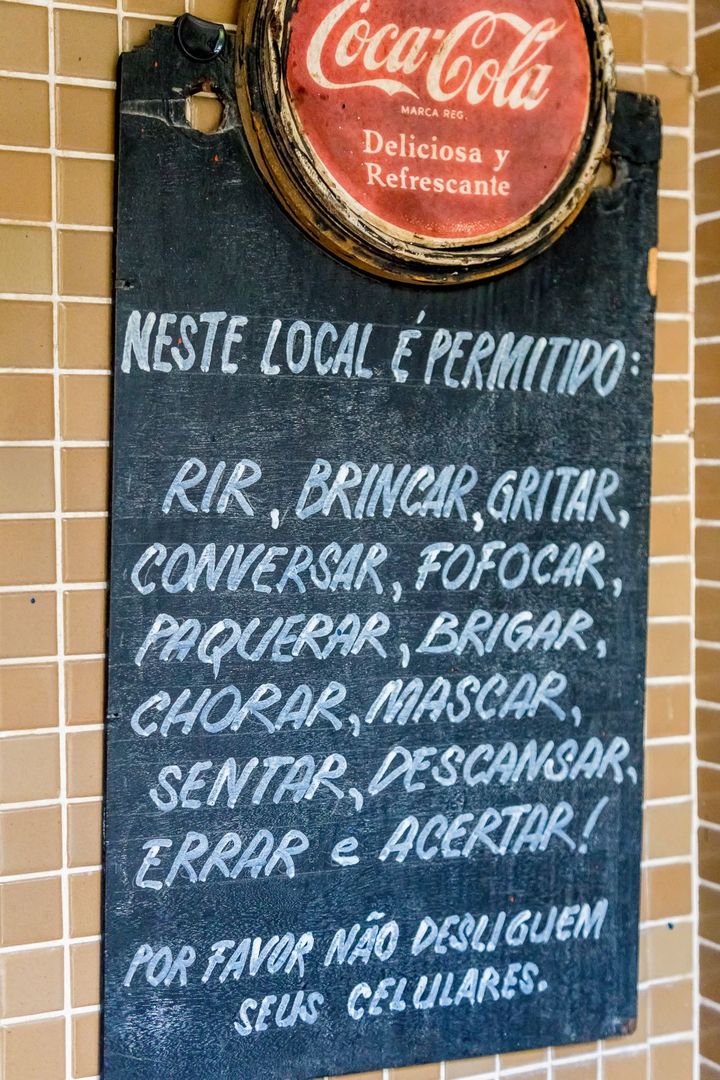 Coca-Cola
MARCA REG.
Deliciosa y
Refrescante
NESTE LOCAL É PERMITIDO:
RIR, BRINCAR, GRITAR,
CONVERSAR, FOFOCAR,
PAQUERAR, BRIGAR,
CHORAR, MASCAR,
SENTAR, DESCANSAR,
ERRAR e ACERTAR!
POR FAVOR NÃO DESLIGUEM
SEUS CELULARES.